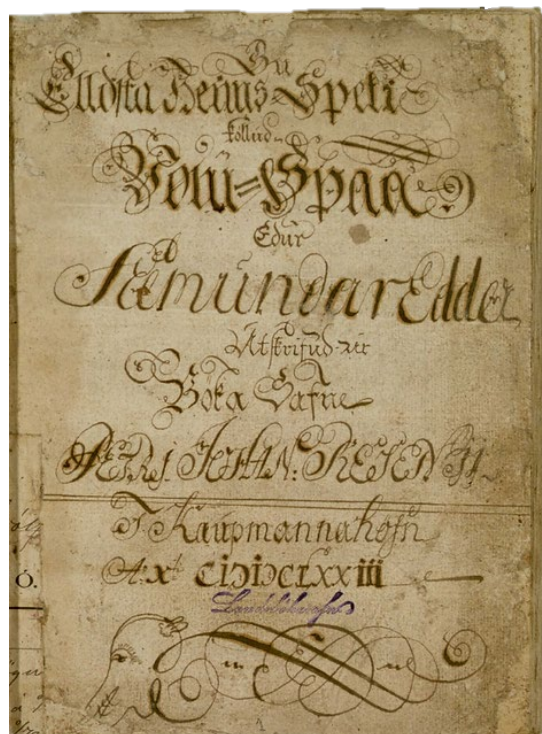 Su
Elldsta Heims Speki
kollud
Vølu=Spaa
Edur
Sæmundar Edda
Utskrifud ur
Bóka Safne
PETRI. JOHAN: RESENII.
I Kaupmannahofn
A: xti CIƆIƆCLXXIII
Ó.